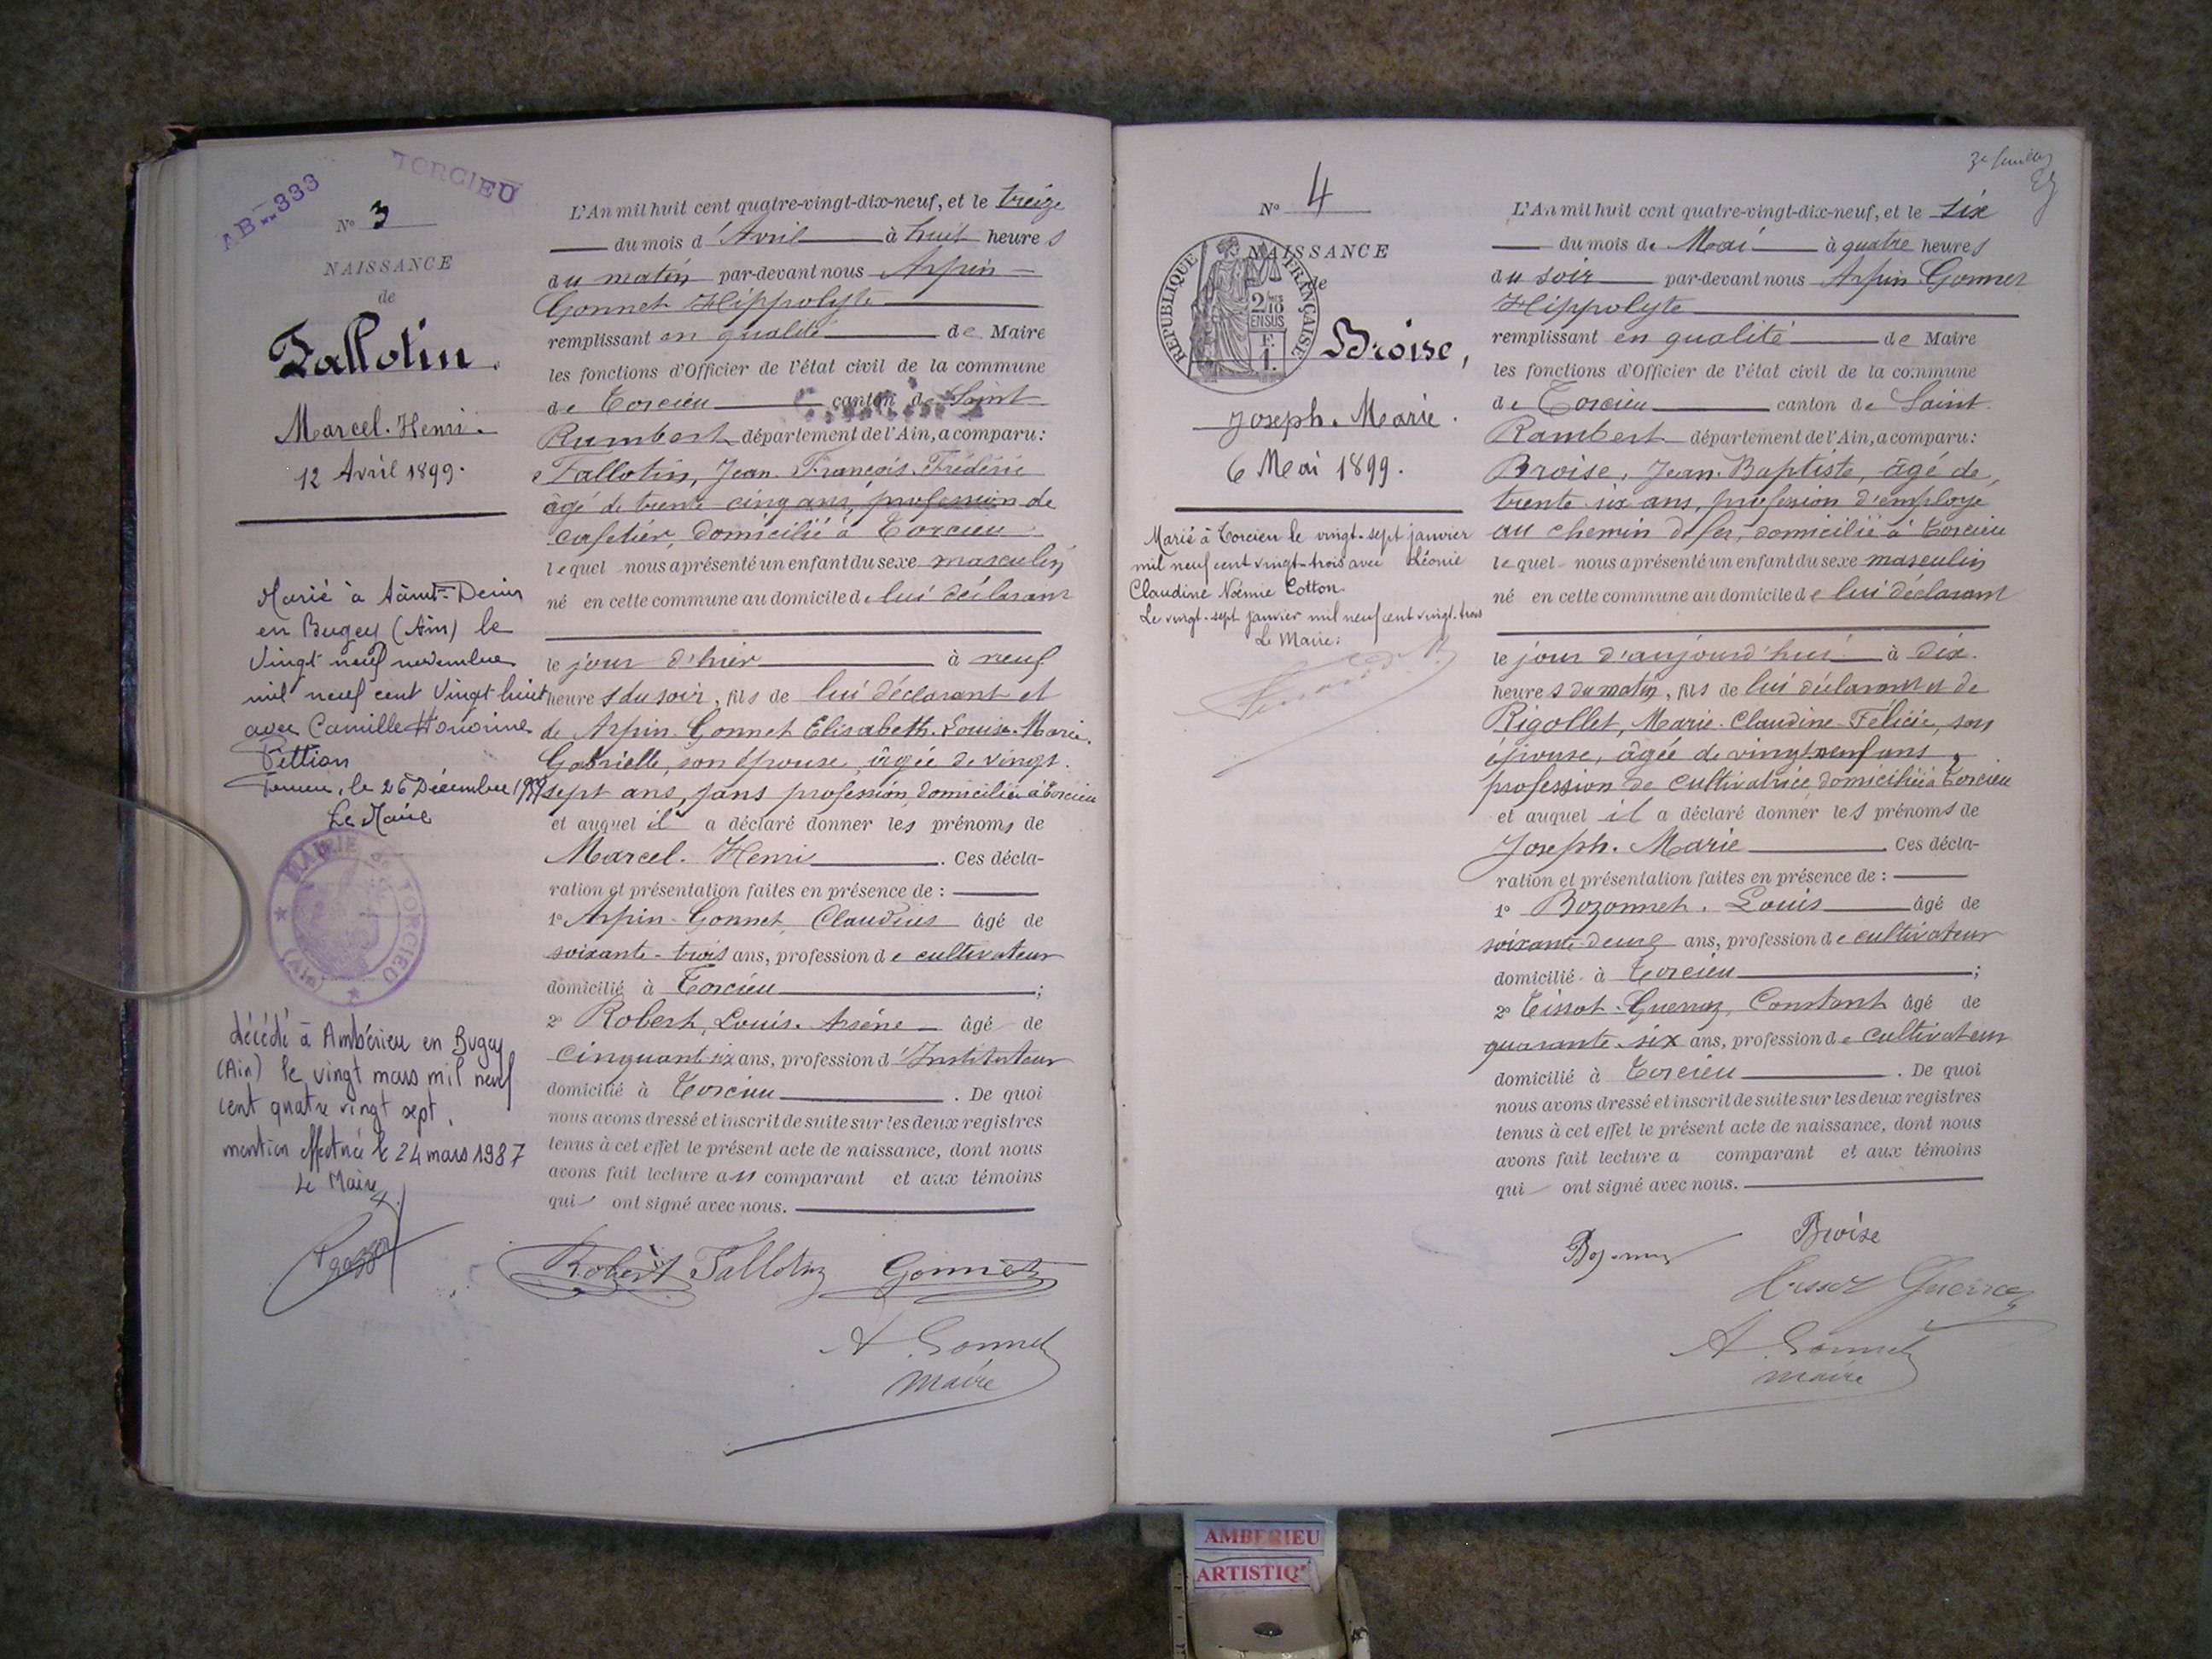 AB--333
TORCIEU
N° 3
NAISSANCE
de
Fallotin.
Marcel. Henri.
12 Avril 1899.
Marié à Saint-Denis
en Bugey (Ain) le
Vingt neuf novembre
mil neuf cent Vingt huit
avec Camille Honorine
Pettion
Torcieu, le 26 Décembre
Le Maire
MAIRIE DE TORCIEU
(Ain)
décédé à Ambérieu en Bugey
(Ain) le vingt mars mil neuf
cent quatre vingt sept.
mention effectuée le 24 mars 1987
Le Maire
L'An mil huit cent quatre-vingt-dix-neuf, et le treize
du mois d'Avril à huit heures
du matin par-devant nous Arpin
Gonnet Hippolyte
remplissant en qualité de Maire
les fonctions d'Officier de l'état civil de la commune
de Torcieu canton de Saint
Rambert département de l'Ain, a comparu:
Fallotin, Jean. François. Frédéric
âgé de trente cinq ans, profession de
cafetier, domicilié à Torcieu
lequel nous a présenté un enfant du sexe masculin
né en cette commune au domicile de lui déclarant
le jour d'hier à neuf
heures du soir, fils de lui déclarant et
de Arpin. Gonnet Elisabeth. Louise. Marie.
Gabrielle, son épouse, âgée de vingt.
sept ans, sans profession, domiciliée à Torcieu
et auquel il a déclaré donner les prénoms de
Marcel. Henri. Ces décla-
ration et présentation faites en présence de :
1° Arpin-Gonnet, Claudius âgé de
soixante-trois ans, profession de cultivateur
domicilié à Torcieu ;
2° Robert, Louis. Arsène âgé de
cinquant six ans, profession d'Instituteur
domicilié à Torcieu. De quoi
nous avons dressé et inscrit de suite sur les deux registres
tenus à cet effet le présent acte de naissance, dont nous
avons fait lecture au comparant et aux témoins
qui ont signé avec nous.
Robert Fallotin Gonnet
A. Gonnet
Maire
N° 4
NAISSANCE
de
REPUBLIQUE FRANÇAISE
2/10
EN SUS
F.
1.
Broise,
Joseph. Marie.
6 Mai 1899.
Marié à Torcieu le vingt-sept janvier
mil neuf cent vingt-trois avec Léonie
Claudine Noémie Cotton.
Le vingt-sept janvier mil neuf cent vingt-trois
Le Maire:
L'An mil huit cent quatre-vingt-dix-neuf, et le six
du mois de Mai à quatre heures
du soir par-devant nous Arpin Gonnet
Hippolyte
remplissant en qualité de Maire
les fonctions d'Officier de l'état civil de la commune
de Torcieu canton de Saint.
Rambert département de l'Ain, a comparu:
Broise, Jean. Baptiste, âgé de,
trente six ans, profession d'employé
au chemin de fer, domicilié à Torcieu
lequel nous a présenté un enfant du sexe masculin
né en cette commune au domicile de lui déclarant
le jour d'aujourd'hui à dix.
heures du matin, fils de lui déclarant et de
Rigollet, Marie. Claudine-Félicie, son
épouse, âgée de vingt neuf ans,
profession de cultivatrice, domiciliée à Torcieu
et auquel il a déclaré donner les prénoms de
Joseph. Marie. Ces décla-
ration et présentation faites en présence de :
1° Bozonnet. Louis âgé de
soixante-deux ans, profession de cultivateur
domicilié à Torcieu ;
2° Tissot-Guerraz, Constant âgé de
quarante-six ans, profession de cultivateur
domicilié à Torcieu. De quoi
nous avons dressé et inscrit de suite sur les deux registres
tenus à cet effet le présent acte de naissance, dont nous
avons fait lecture a comparant et aux témoins
qui ont signé avec nous.
Broise
Tissot Guerraz
A. Gonnet
maire
AMBERIEU
ARTISTIQ